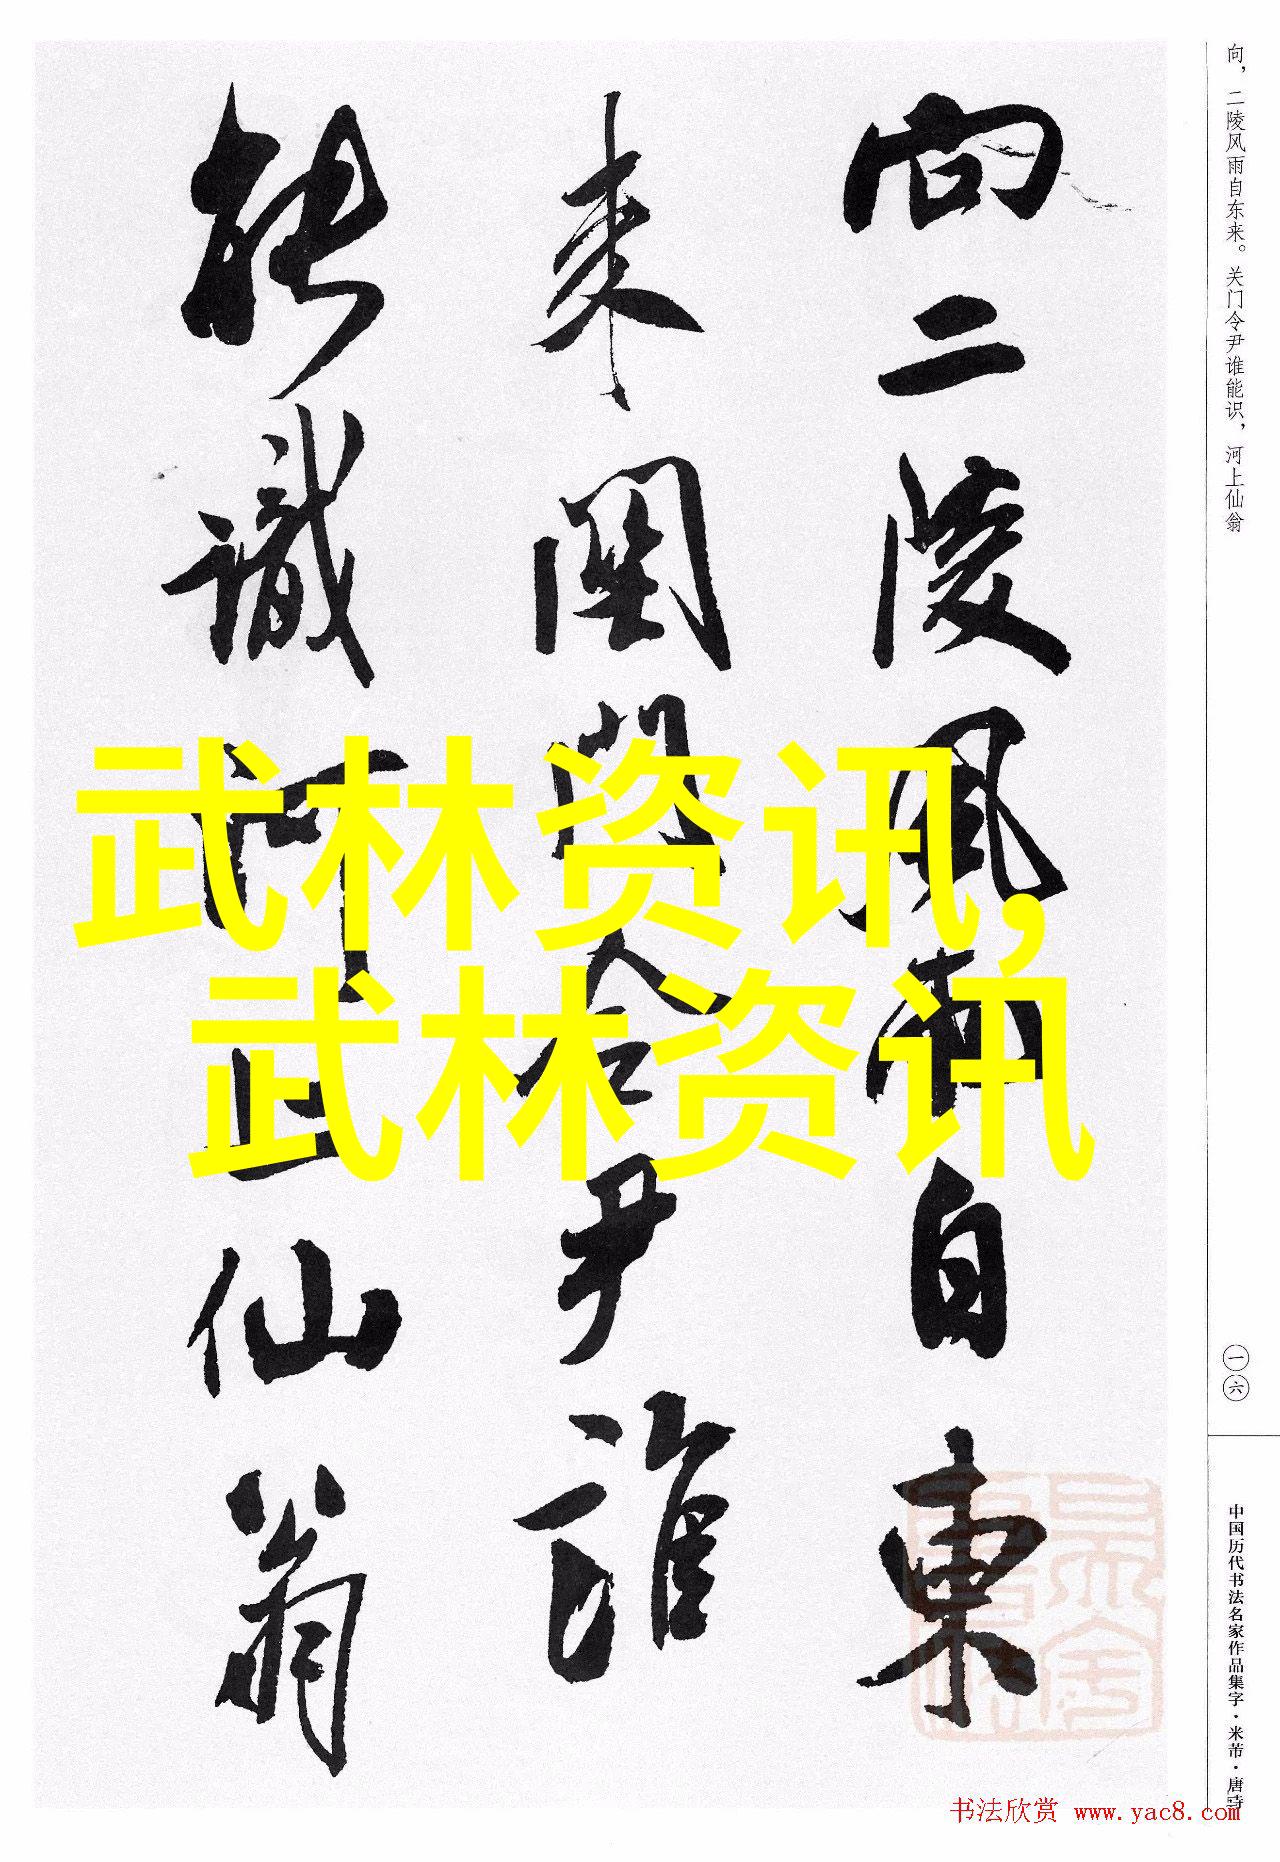 向二陵风雨自东
来关门令尹谁
能识河上仙翁
向，二陵风雨自东来。关门令尹谁能识，河上仙翁
武林资讯，
武林资讯
一六
中国历代书法名家作品集字·米芾·唐诗
书法欣赏 www.yac8.com